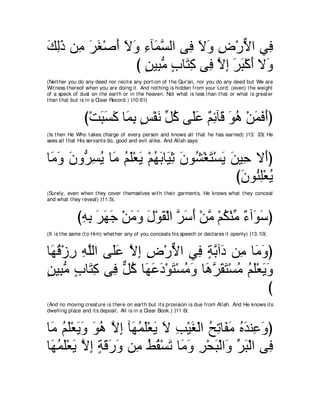 فِي الأَرْضِ وَلاَ فِى السَّمَآءِ وَلاَ أَصْغَرَ مِن ذَلِكَ
وَلاَ أَكْبَرَ إِلاَّ فِى كِتَابٍ مُّبِينٍ )
(Neither you do any deed nor recite any portion of the Qur'an, nor you do any deed but We are
Witness thereof when you are doing it. And nothing is hidden from your Lord, (even) the weight
of a speck of dust on the earth or in the heaven. Not what is less than that or what is greater
than that but is in a Clear Record.) )10:61(
(أَفَمَنْ هُوَ قَآئِمٌ عَلَى كُلِّ نَفْسٍ بِمَا كَسَبَتْ)
(Is then He Who takes charge of every person and knows all that he has earned) )13: 33( He
sees all that His servants do, good and evil alike. And Allah says:
(أَلا حِينَ يَسْتَغْشُونَ ثِيَابَهُمْ يَعْلَمُ مَا يُسِرُّونَ وَمَا
يُعْلِنُونَ)
(Surely, even when they cover themselves with their garments, He knows what they conceal
and what they reveal) )11:5(.
(سَوَآءٌ مِّنْكُمْ مَّنْ أَسَرَّ الْقَوْلَ وَمَنْ جَهَرَ بِهِ)
(It is the same (to Him) whether any of you conceals his speech or declares it openly) )13:10(.
(وَمَا مِن دَآبَّةٍ فِي الأَرْضِ إِلاَّ عَلَى اللَّهِ رِزْقُهَا
وَيَعْلَمُ مُسْتَقَرَّهَا وَمُسْتَوْدَعَهَا كُلٌّ فِى كِتَابٍ مُّبِينٍ
)
(And no moving creature is there on earth but its provision is due from Allah. And He knows its
dwelling place and its deposit. All is in a Clear Book.) )11:6(
(وَعِندَهُ مَفَاتِحُ الْغَيْبِ لاَ يَعْلَمُهَآ إِلاَّ هُوَ وَيَعْلَمُ مَا
فِى الْبَرِّ وَالْبَحْرِ وَمَا تَسْقُطُ مِن وَرَقَةٍ إِلاَّ يَعْلَمُهَا